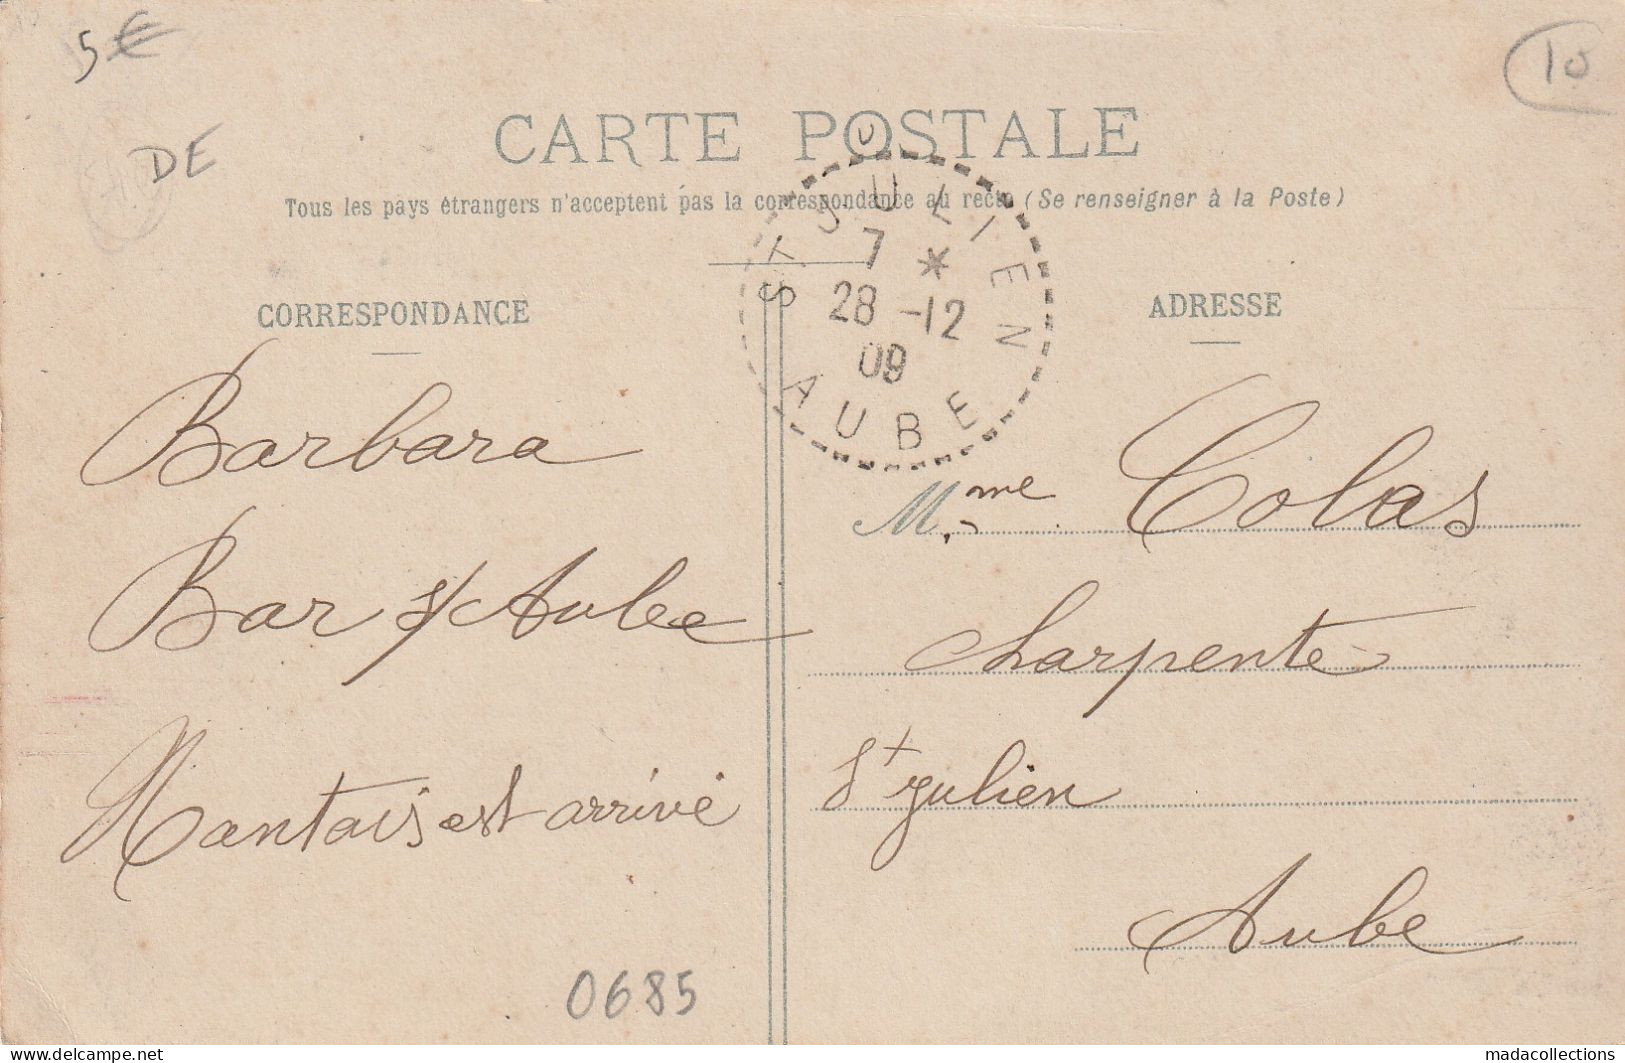 5€
10
DE
CARTE POSTALE
Tous les pays étrangers n'acceptent pas la correspondance au recto (Se renseigner à la Poste)
ST JULIEN
7 *
28 -12
09
AUBE
CORRESPONDANCE
ADRESSE
Barbara
Bar s/ Aube
Nantais est arrivé
M.me Colas
Charpente
St Julien
Aube
0685
www.delcampe.net
madacollections